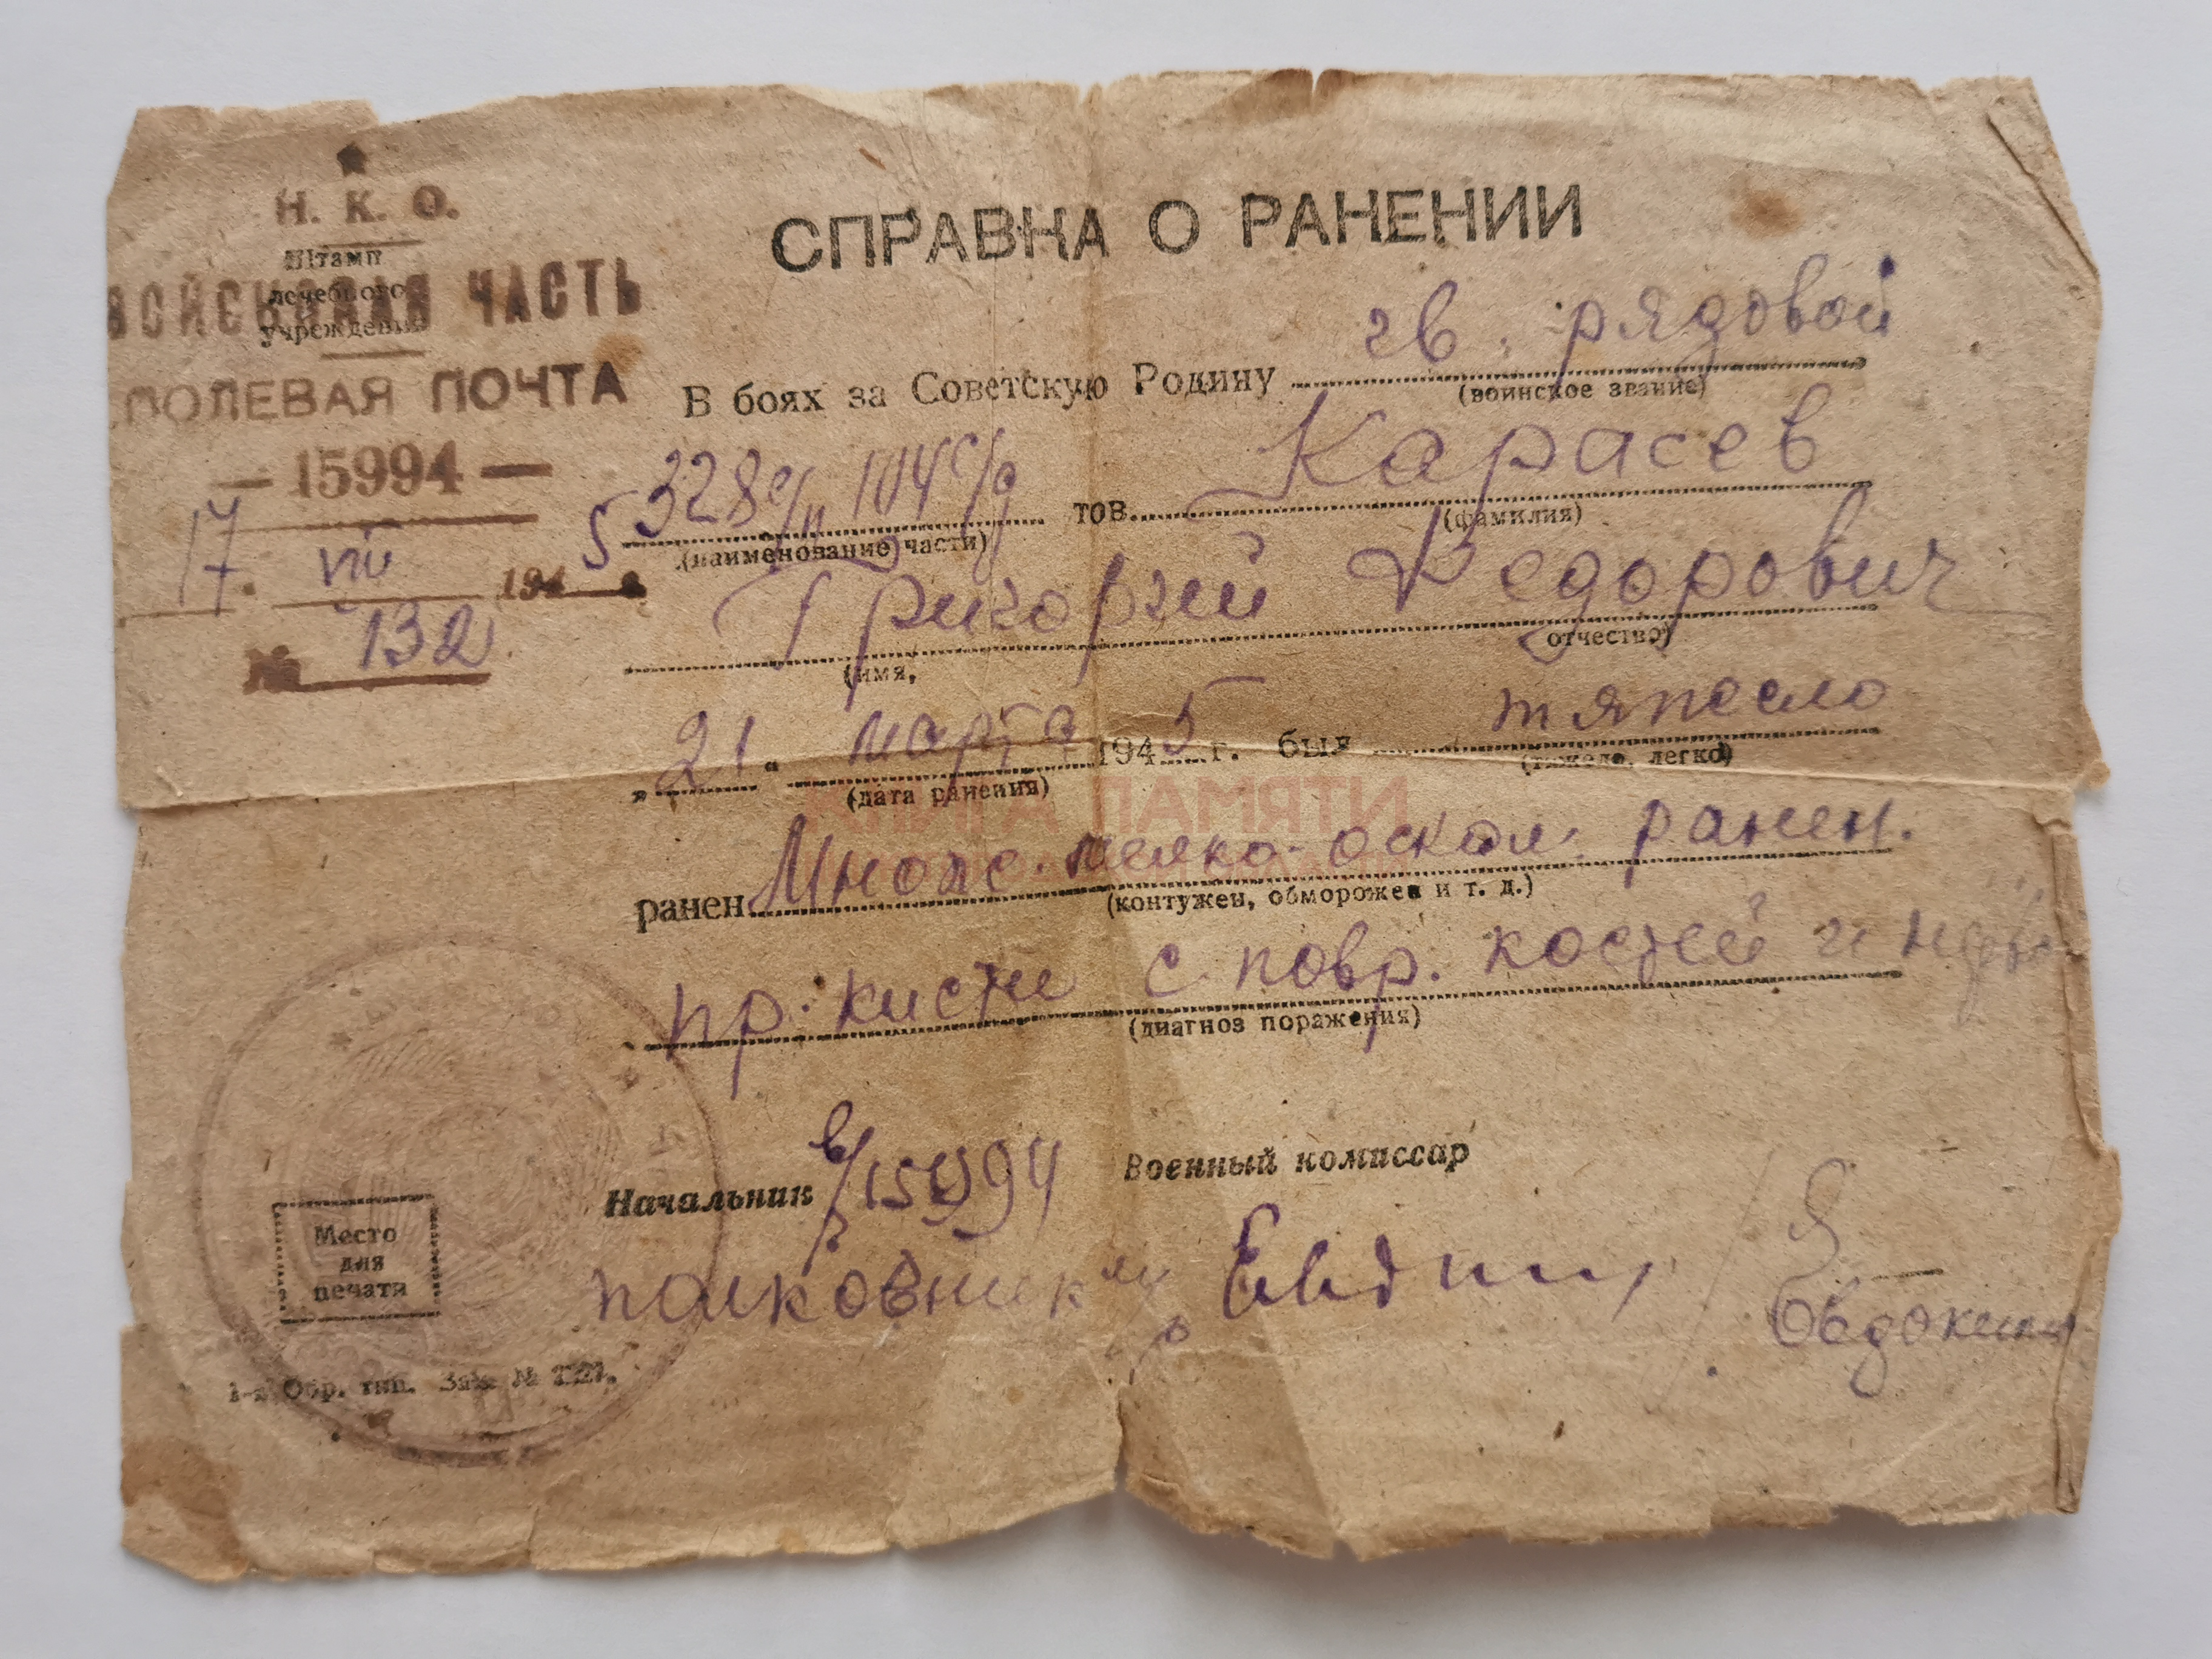 Н. К. О.
Штамп
лечебного
учреждения
ВОЙСКОВАЯ ЧАСТЬ
ПОЛЕВАЯ ПОЧТА
— 15994 —
17. VIII 1945
№ 132
СПРАВКА О РАНЕНИИ
В боях за Советскую Родину гв. рядовой
(воинское звание)
328 с/п 104 с/д тов. Карасев
(наименование части) (фамилия)
Григорий Федорович
(имя, отчество)
„21“ марта 1945 г. был тяжело
(дата ранения) (тяжело, легко)
ранен Множ. мелко-оскол. ранен.
(контужен, обморожен и т. д.)
пр. кисти с повр. костей и
(диагноз поражения)
Начальник в/ч 15994 Военный комиссар
полковник м/с
Евдокимов
Место
для
печати
1-я Обр. тип. Зак. №
КНИГА ПАМЯТИ